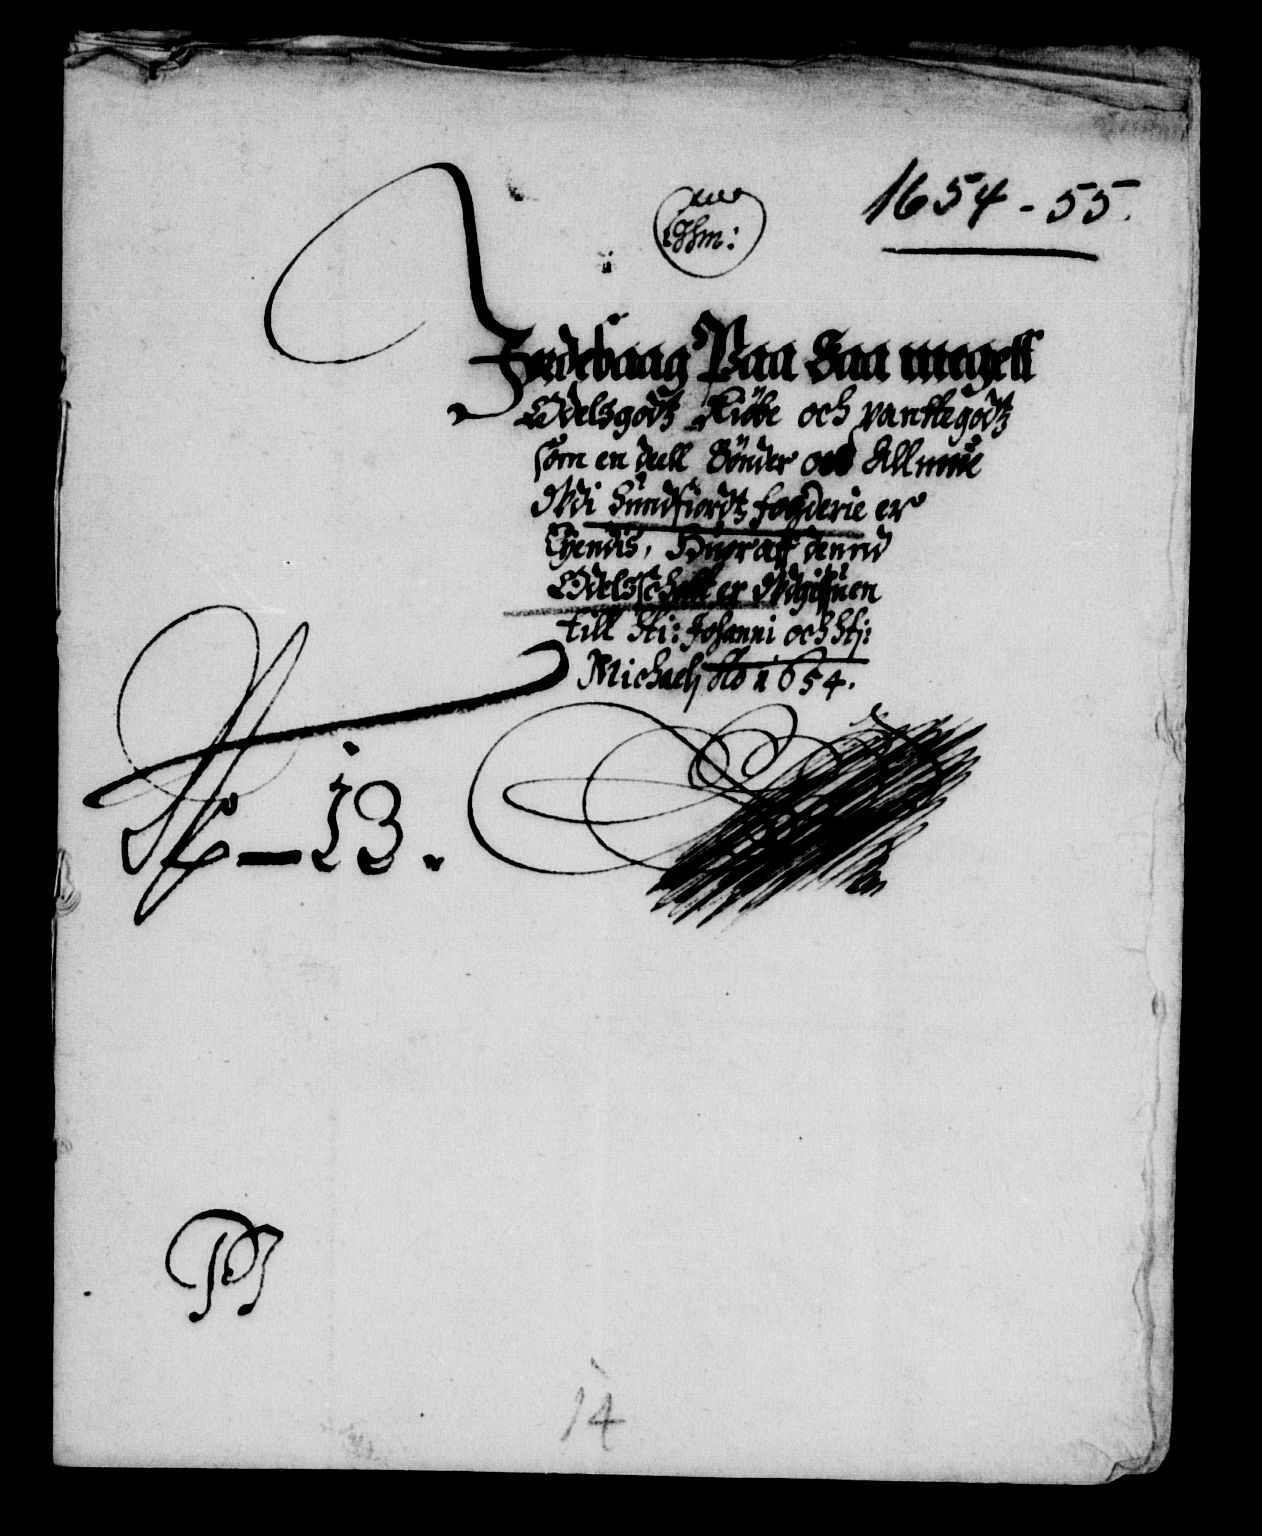 1654 - 55.
Jordebaag Paa Saa megett
Odelsgodtz Kiøbe och pantegodtz
som en deell Bønder och Allmue
Udi Sundfiordtz fogderie er
Eyendis, Huoraff dennd
Odelsschatt er Udgiffuen
till Sti: Johanni och Sti:
Michaelj Ao 1654.
No - 13.
14